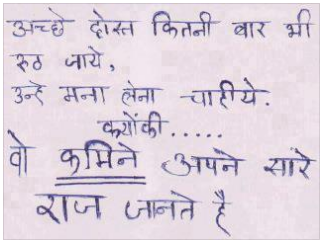 अच्छे दोस्त कितनी बार भी
रुठ जाये,
उन्हे मना लेना चाहीये.
क्योंकी......
वो कमिने अपने सारे
राज जानते है